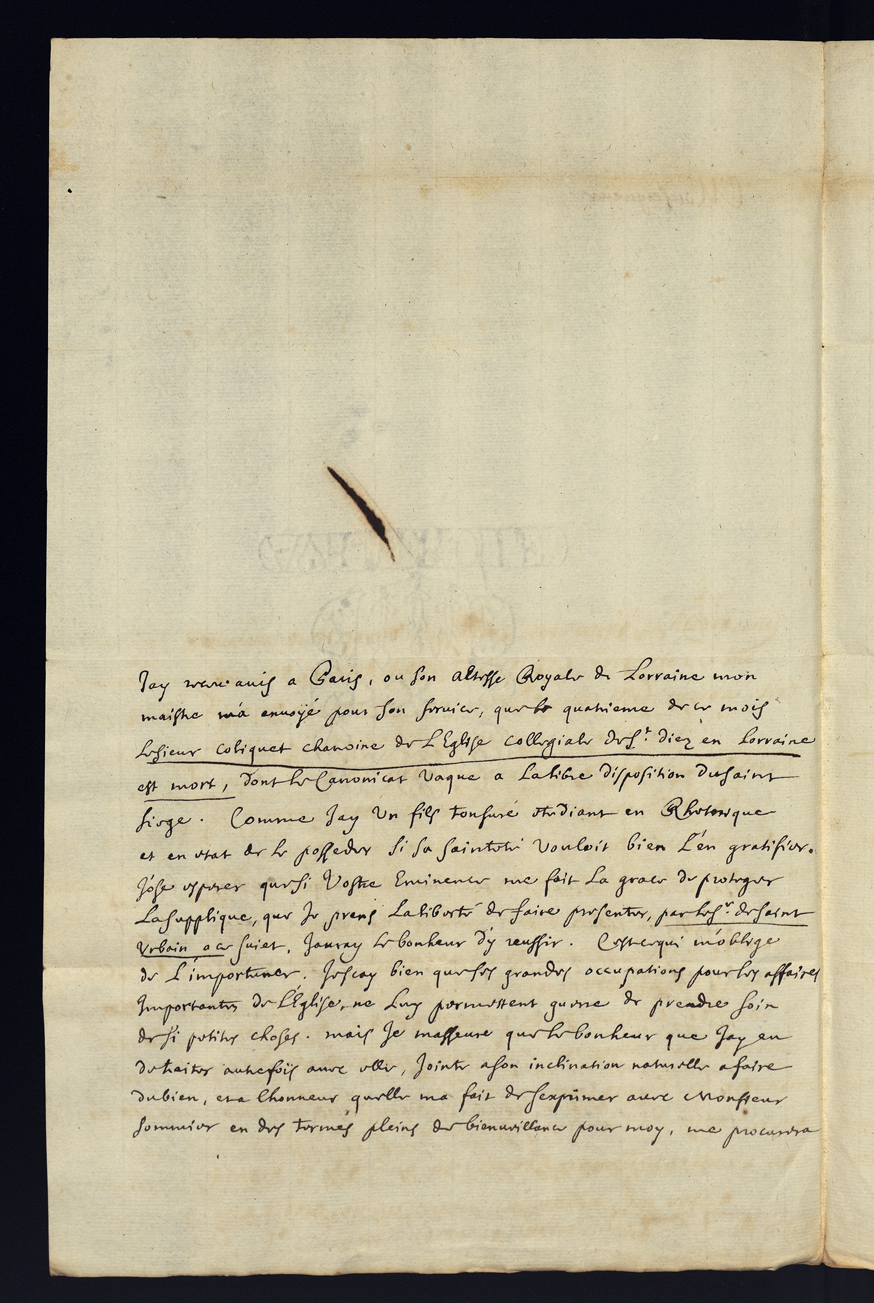 Jay receu avis a Paris, ou son altesse Royale de Lorraine mon
maistre m'a envoyé pour son service, que le quatrieme de ce mois
le sieur coliquet chanoine de L'Eglise collegiale de St. diez en Lorraine
est mort, dont le Canonicat Vaque a la libre disposition du saint
siege. Comme Jay Un fils tonsuré etudiant en Rhetorique
et en etat de le posseder si sa sainteté vouloit bien L'en gratifier.
J'ose esperer que si Vostre Eminence me fait La grace de proteger
La supplique, que Je prens La liberté de faire presenter, par le Sr. de saint
Urbain a ce suiet, Jauray le bonheur d'y reussir. C'est ce qui m'oblige
de L'importuner. Je scay bien que ses grandes occupations pour les affaires
Importantes de L'Église, ne Luy permettent guerre de prendre soin
de si petites choses. mais Je masseure que le bonheur que Jay eu
de traiter autrefois avec elle, Jointe a son inclination naturelle a faire
du bien, et a lhonneur quelle ma fait de sexprimer avec Monsieur
Sommier en des termes pleins de bienveillance pour moy, me procurera